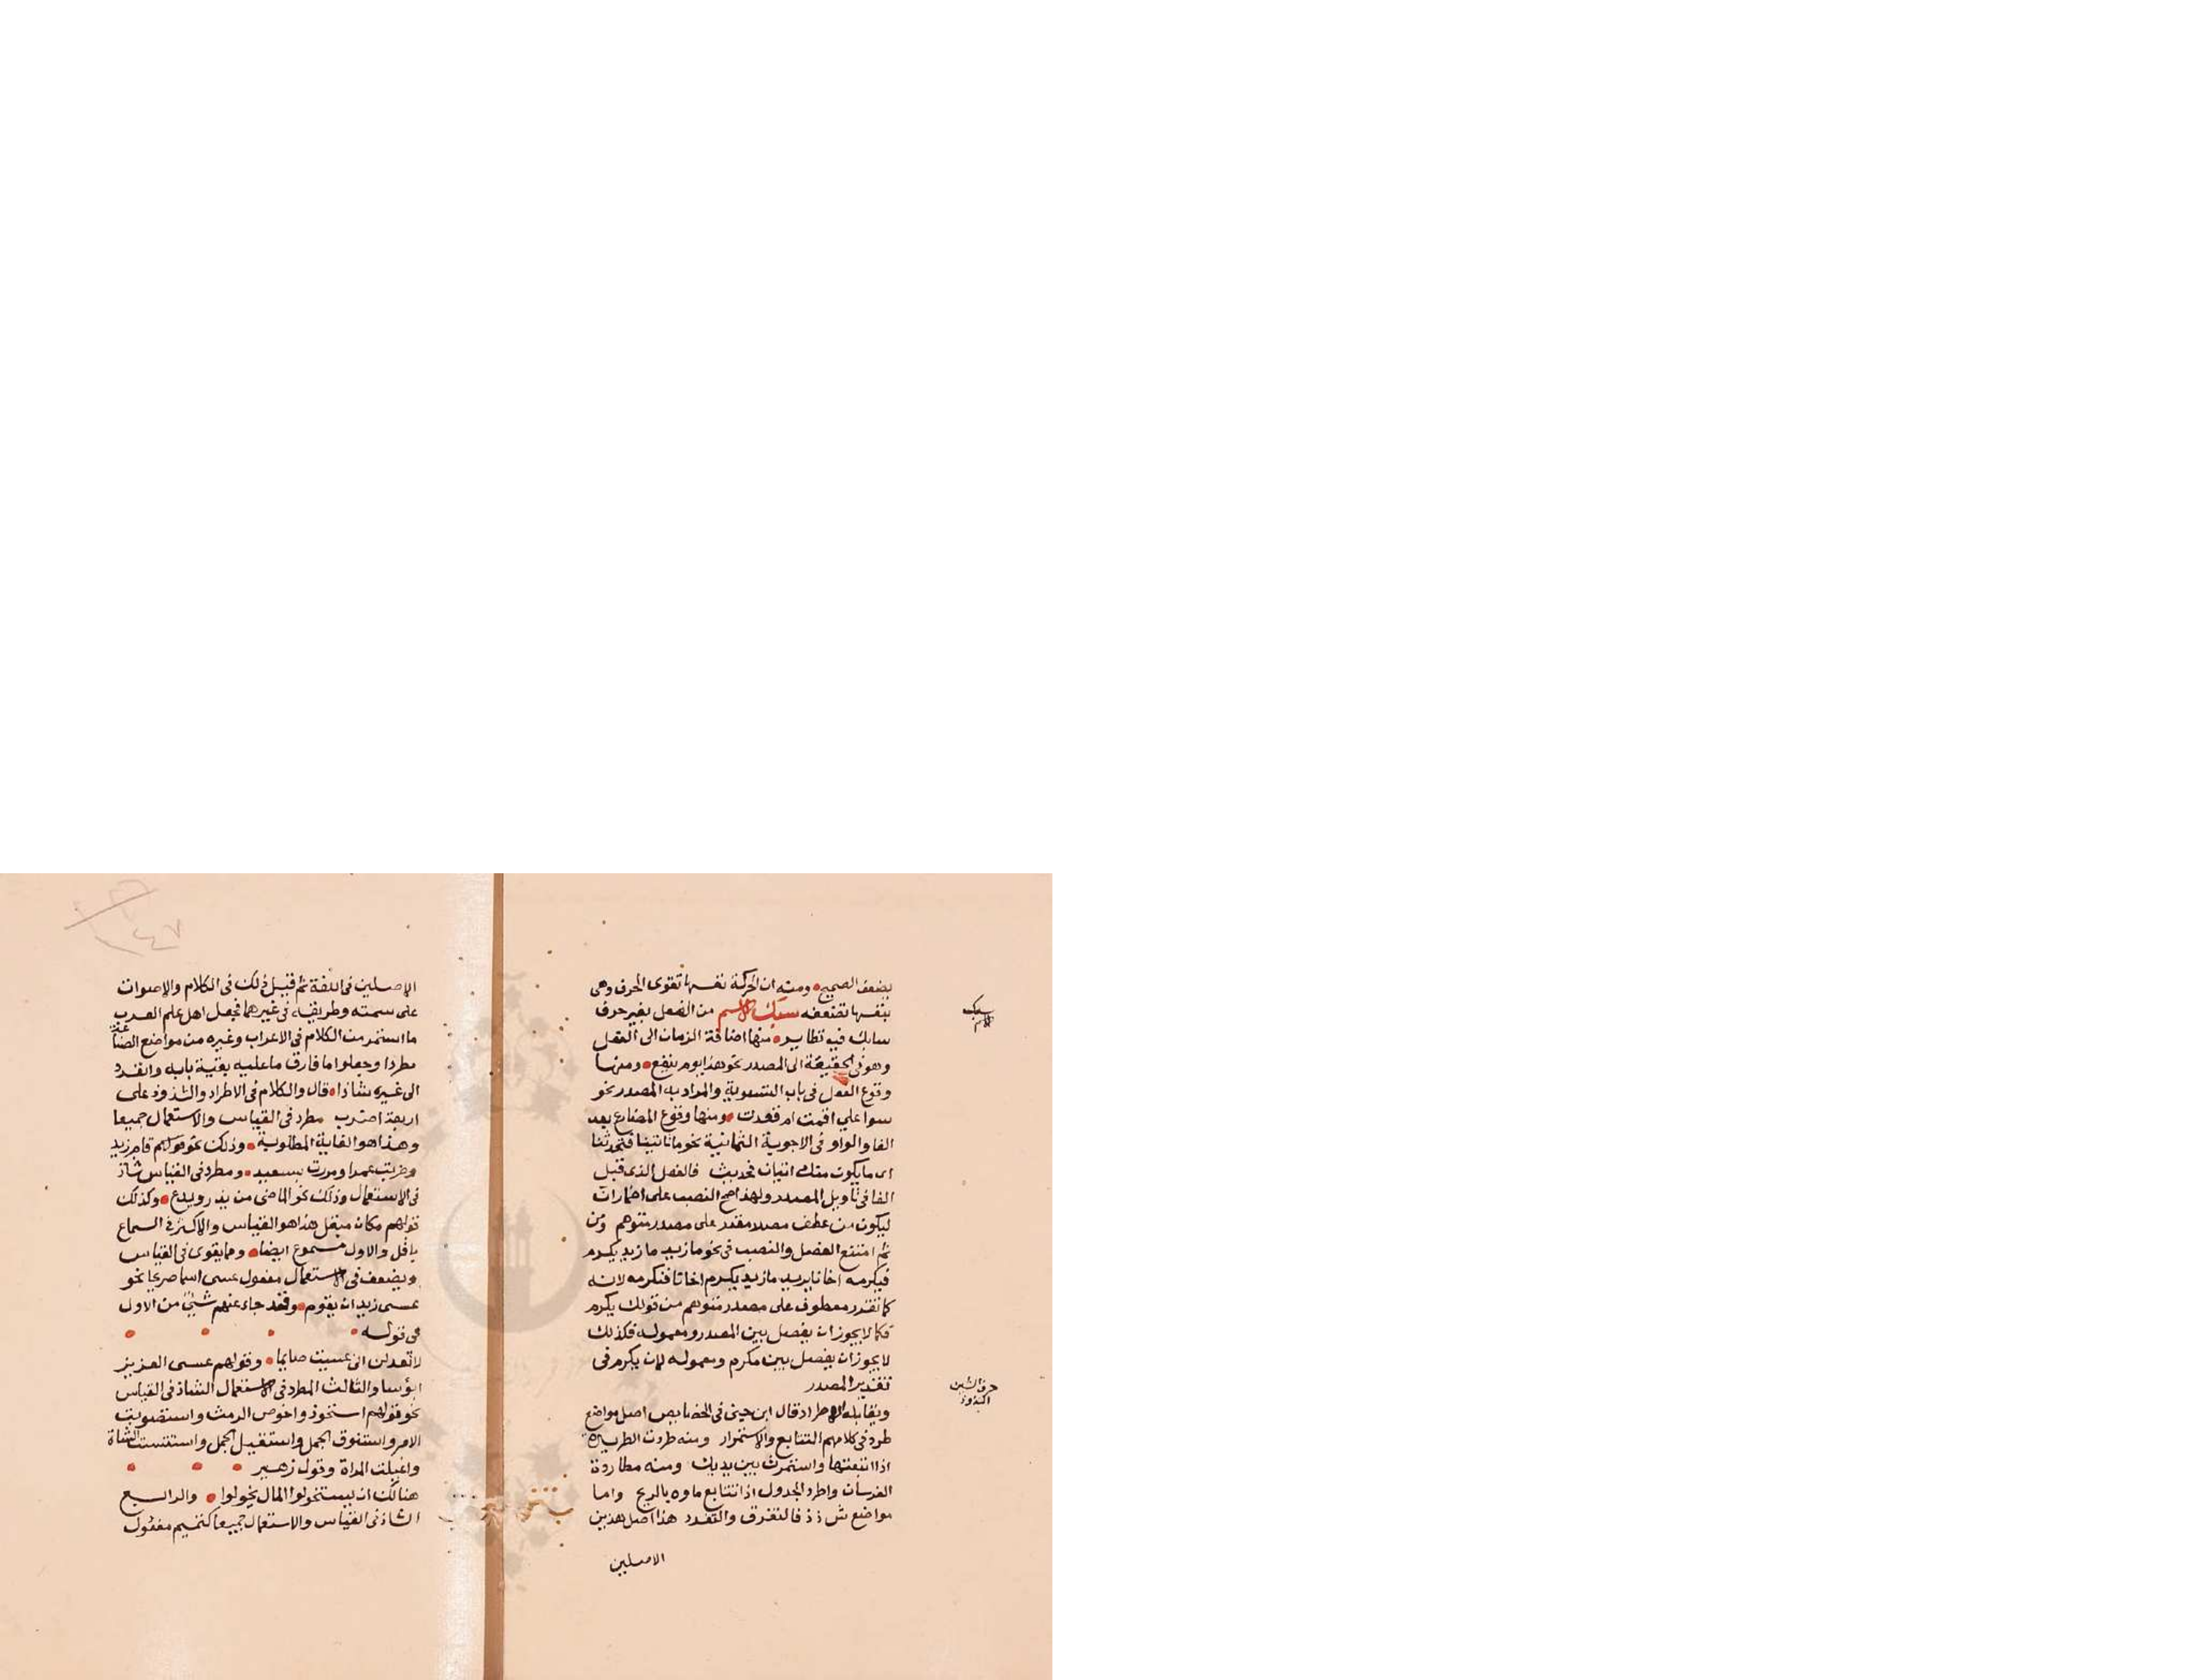 يضعف الصحيح ومنه ان الحركة نفسها تقوى الحرف وهى
بنفسها تضعفه سبك الاسم من الفعل بغير حرف
سبك
الاسم
سابك فيه نظاير منها اضافة الزمان الى الفعل
وهو فى الحقيقة الى المصدر نحو هذا يوم ينفع ومنها
وقوع الفعل فى باب التسوية والمراد به المصدر نحو
سوا علي اقمت ام قعدت ومنها وقوع المضارع بعد
الفا والواو فى الاجوبة الثمانية نحو ما تاتينا فتحدثنا
اى ما يكون منك اتيان فحديث فالفعل الذى قبل
الفا فى تاويل المصدر ولهذا صح النصب على اضمار ان
ليكون من عطف مصدر مقدر على مصدر متوهم ومن
ثم امتنع الفصل والنصب فى نحو ما زيد ما زيد يكرم
فيكرمه اخانا يريد ما زيد يكرم اخانا فنكرمه لانه
كما تقدر معطوف على مصدر متوهم من قولك يكرم
فكما لا يجوز ان يفصل بين المصدر ومعموله فكذلك
لا يجوز ان يفصل بين مكرم ومعموله لان يكرم فى
تقدير المصدر
حرف الشين
الشذوذ
ويقابله الاطراد قال ابن جنى فى الخصايص اصل مواضع
طرد فى كلامهم التتابع والاستمرار ومنه طردت الطريدة
اذا اتبعتها واستمرت بين يديك ومنه مطاردة
الفرسان واطرد الجدول اذا تتابع ماوه بالريح واما
مواضع ش ذ ذ فالتفرق والتفرد هذا اصل هذين
الاصلين
الاصلين فى اللغة ثم قيل ذلك فى الكلام والاصوات
على سمته وطريقه فى غيرهما فجعل اهل علم العرب
ما استمر من الكلام فى الاعراب وغيره من مواضع الصناعة
مطردا وجعلوا ما فارق ما عليه بقية بابه وانفرد
الى غيره شاذا قال والكلام فى الاطراد والشذوذ على
اربعة اضرب مطرد فى القياس والاستعمال جميعا
وهذا هو الغاية المطلوبة وذلك نحو قولهم قام زيد
وضربت عمرا ومررت بسعيد ومطرد فى القياس شاذ
فى الاستعمال وذلك نحو الماضى من يذر ويدع وكذلك
قولهم مكان مبقل هذا هو القياس والاكثر فى السماع
باقل والاول مسموع ايضا ومما يقوى فى القياس
ويضعف فى الاستعمال مفعول عسى اسما صريحا نحو
عسى زيد ان يقوم وقد جاء عنهم شىء من الاول
فى قوله
لا تعذلن انى عسيت صايما وقولهم عسى الغوير
ابؤسا والثالث المطرد فى الاستعمال الشاذ فى القياس
نحو قولهم استحوذ واخوص الرمث واستصوبت
الامر واستنوق الجمل واستفيل الجمل واستتيست الشاة
واغيلت المراة وقول زهير
هنالك ان يستخولوا المال يخولوا والرابع
الشاذ فى القياس والاستعمال جميعا كتتميم مفعول